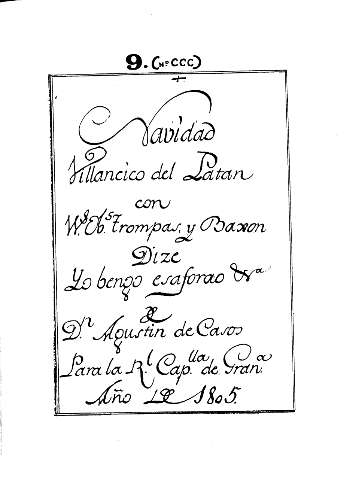 9. (Nº CCC)
Navidad
Villancico del Patan
con
Vˢ. Obˢ. trompas, y Baxon
Dize
Yo bengo esaforao &ᵃ
De
D.ⁿ Agustin de Casos
Para la R.ˡ Cap.ˡˡᵃ de Gran.ᵃ
Año De 1805.